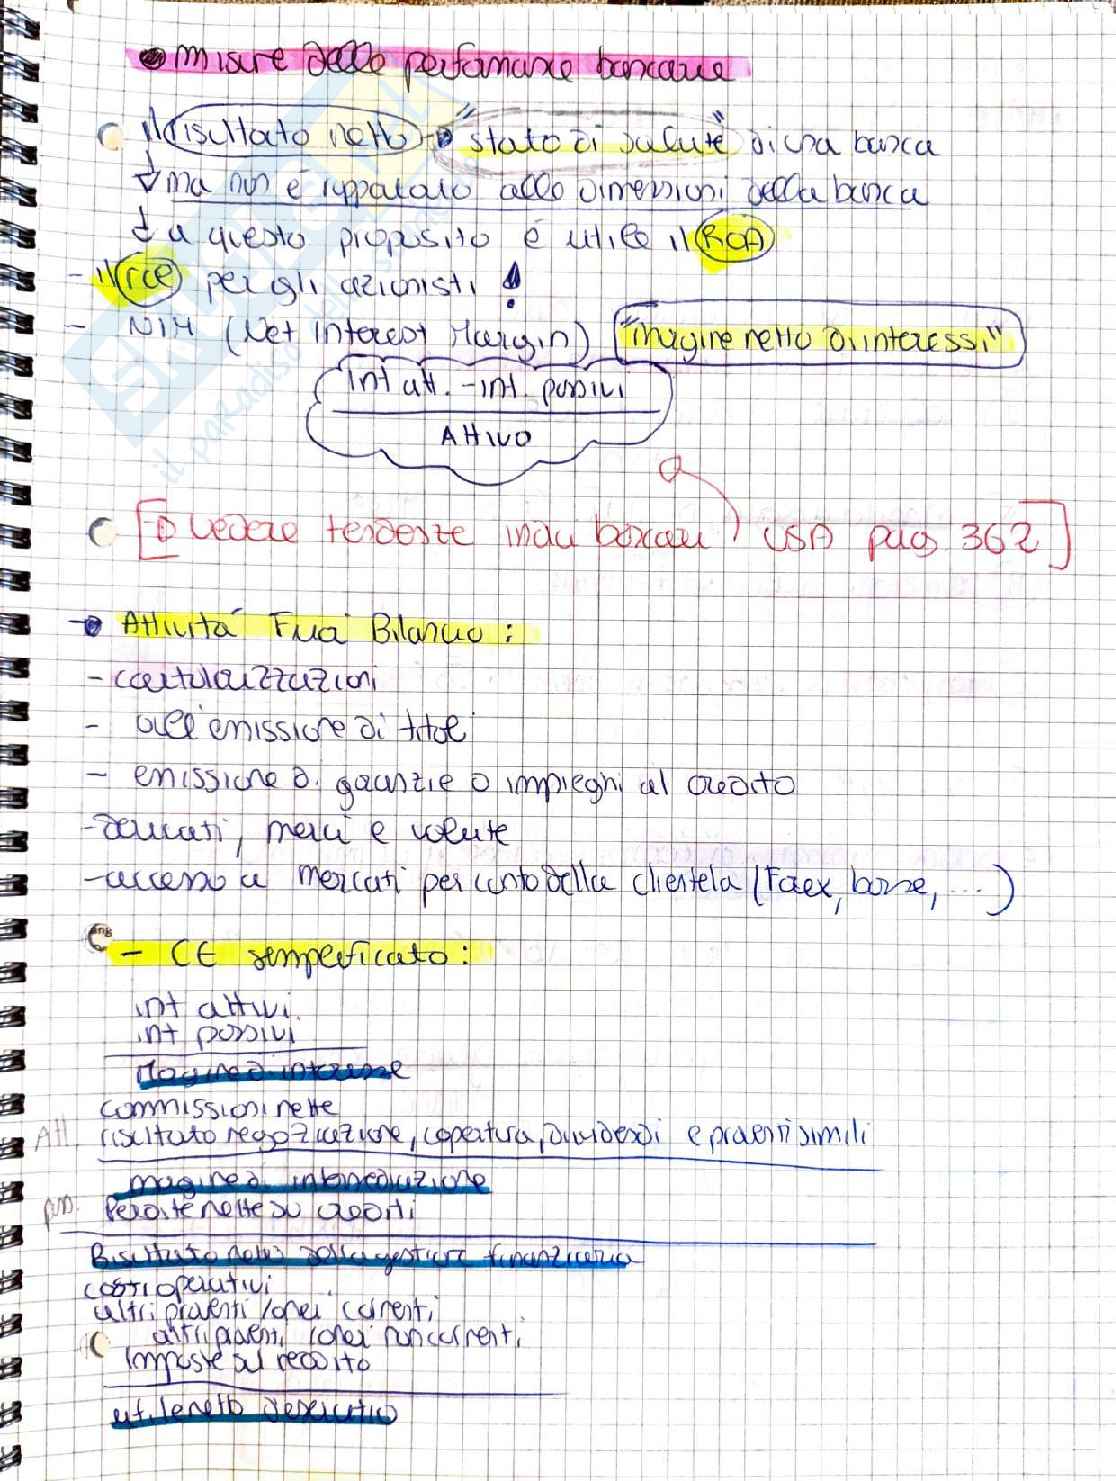 • misure delle performance bancarie
il risultato netto → "stato di salute" di una banca
↓ ma non è rapportato alle dimensioni della banca
↓ a questo proposito è utile il ROA
- il roe per gli azionisti !
- NIM (Net Interest Margin) "margine netto di interessi"
int att. - int. passivi
Attivo
[→ vedere tendenze indici bancari USA pag 362]
• Attività Fuori Bilancio:
- cartolarizzazioni
- all'emissione di titoli
- emissione di garanzie o impieghi al credito
- derivati, merci e valute
- accesso a mercati per conto della clientela (Forex, borse, ...)
- CE semplificato:
int attivi
int passivi
Margine di interesse
commissioni nette
Att. risultato negoziazione, copertura, dividendi e proventi simili
margine di intermediazione
pass. Perdite nette su crediti
Risultato netto della gestione finanziaria
costi operativi
altri proventi/oneri correnti
altri proventi/oneri non correnti
Imposte sul reddito
utile netto d'esercizio